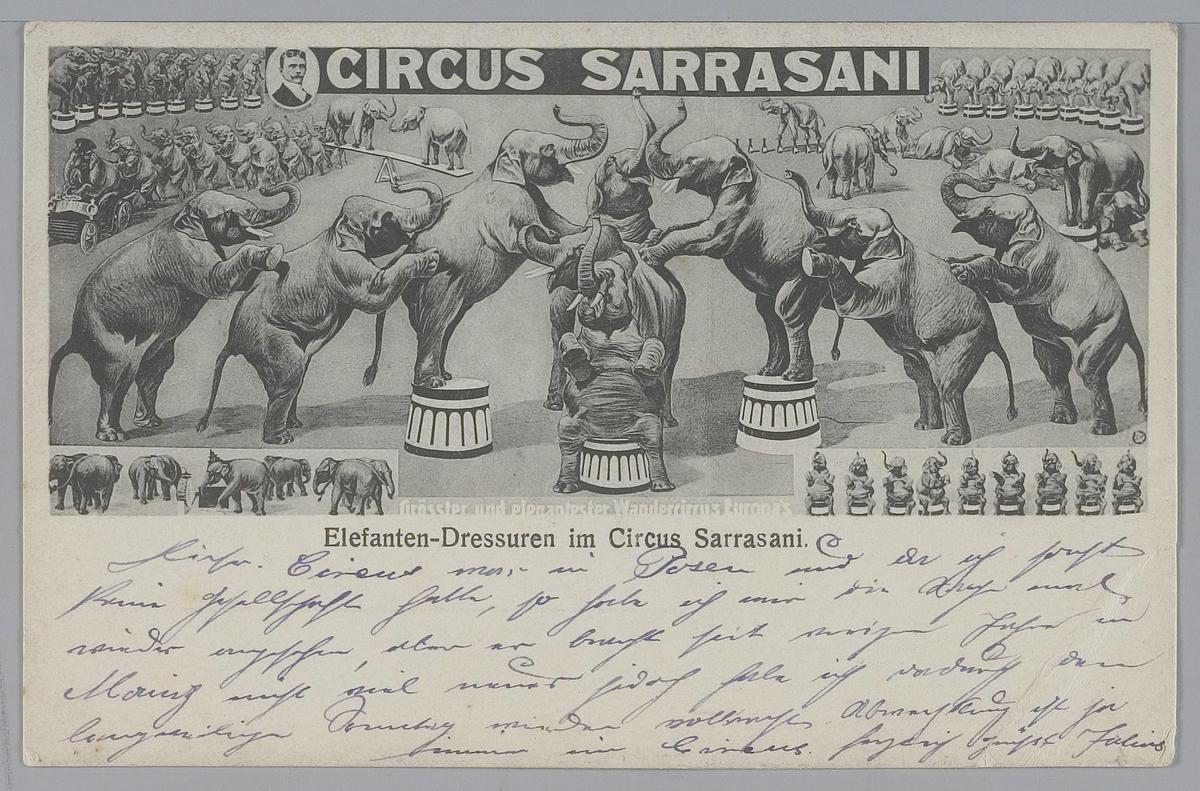 CIRCUS SARRASANI
Grösster und elegantester Wandercircus Europa's
Elefanten-Dressuren im Circus Sarrasani.
Circus war in Posen und da ich sonst
keine Gesellschaft hatte, so habe ich mir die Sache mal
wieder angesehen, aber er bringt seit vorigem Jahre in
Mainz nicht viel neues jedoch habe ich dadurch den
langweiligen Sonntag wieder vollbracht Abwechslung ist ja
immer im Circus. herzlich grüßt Julius